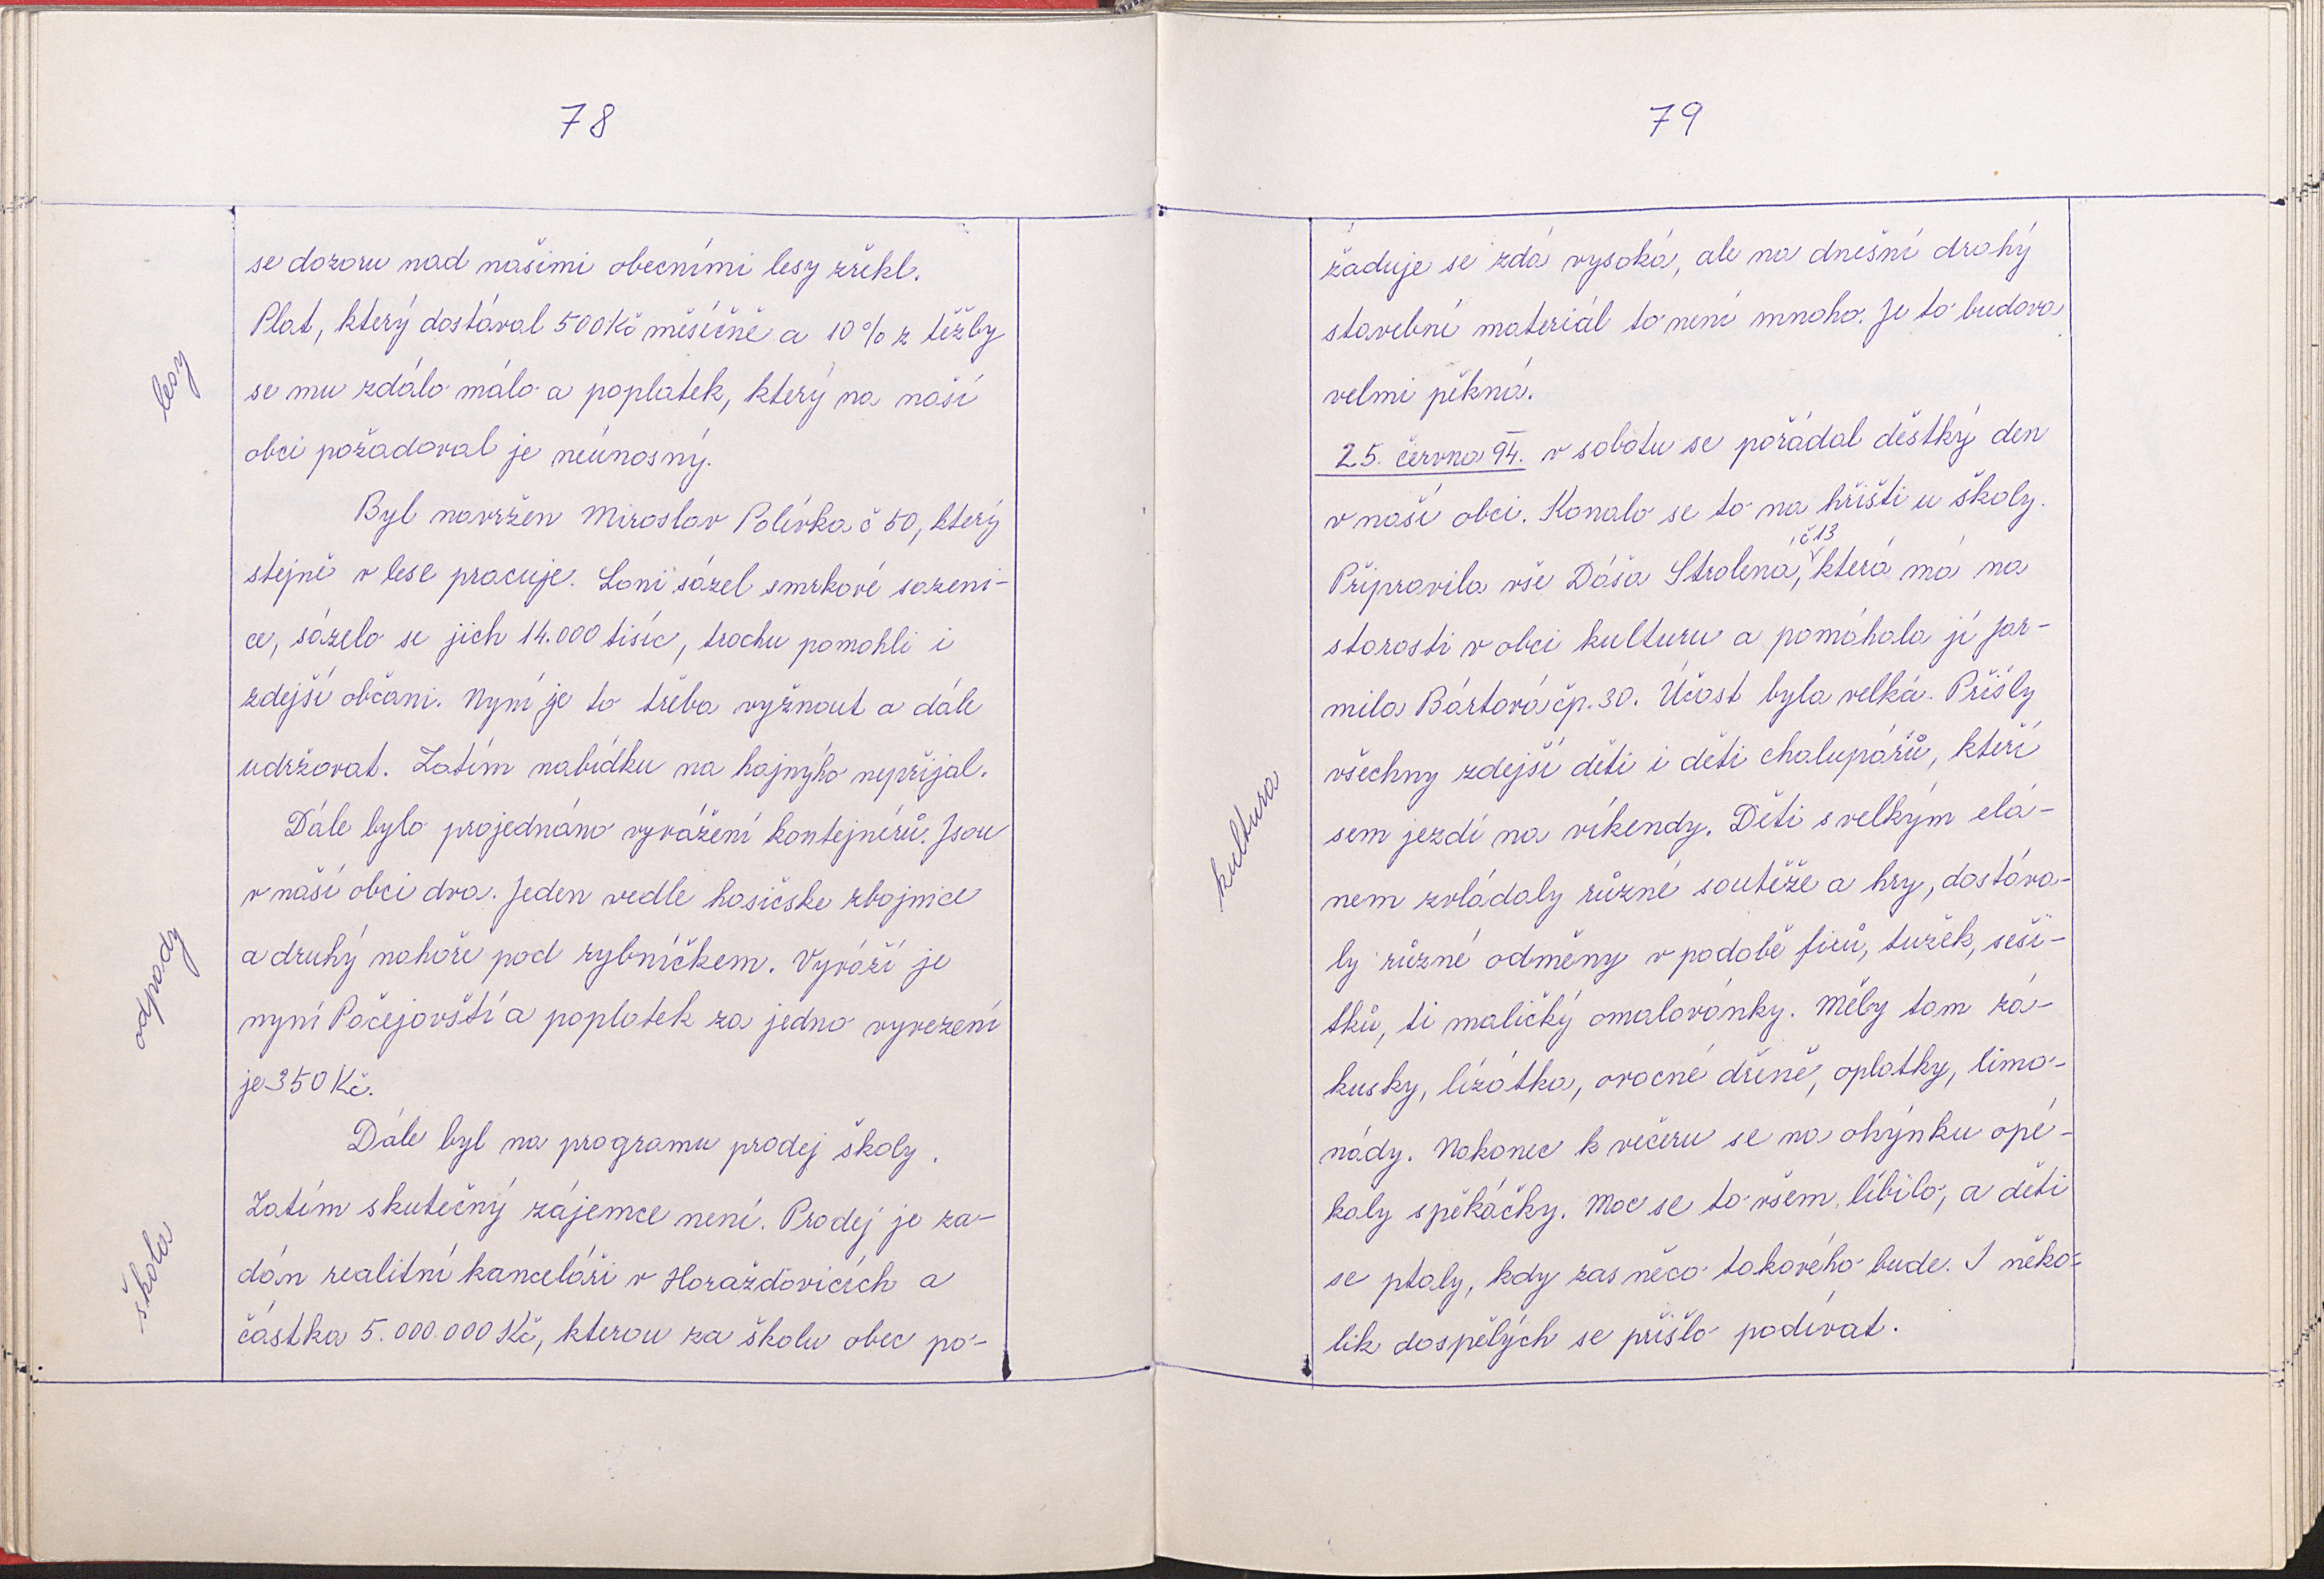 78
se dozoru nad našimi obecními lesy zřekl.
Plat, který dostával 500 Kč měsíčně a 10% z těžby
lesy
se mu zdálo málo a poplatek, který na naší
obci požadoval je neúnosný.
Byl navržen Miroslav Polívka č 50, který
stejně v lese pracuje. Loni sázel smrkové sazeni-
ce, sázelo se jich 14.000 tisíc, trochu pomohli i
zdejší občani. Nyní je to třeba vyžnout a dále
udržovat. Zatím nabídku na hajnýho nepřijal.
Dále bylo projednáno vyvážení kontejnérů. Jsou
v naší obci dva. Jeden vedle hasičske zbojnice
odpady
a druhý nahoře pod rybníčkem. Vyváží je
nyní Pačejovští a poplatek za jedno vyvezení
je 350 Kč.
Dále byl na programu prodej školy.
škola
Zatím skutečný zájemce není. Prodej je za-
dán realitní kanceláři v Horažďovicích a
částka 5.000.000 Kč, kterou za školu obec po-
79
žaduje se zdá vysoká, ale na dnešní drahý
stavební materiál to není mnoho. Je to budova
velmi pěkná.
25. června 94. v sobotu se pořádal dětský den
v naší obci. Konalo se to na hřišti u školy.
, č 13
Připravila vše Dáša Strolená, která má na
starosti v obci kulturu a pomáhala jí Jar-
mila Bártová čp. 30. Účast byla velká. Přišly
kultura
všechny zdejší děti i děti chalupářů, kteří
sem jezdí na víkendy. Děti s velkým elá-
nem zvládaly různé soutěže a hry, dostáva-
ly různé odměny v podobě fixů, tužek, seši-
tků, ti maličký omalovánky. Měly tam zá-
kusky, lízátka, ovocné dřeně, oplatky, limo-
nády. Nakonec k večeru se na ohýnku opé-
kaly špekáčky. Moc se to všem líbilo, a děti
se ptaly, kdy zas něco takového bude. I něko-
lik dospělých se přišlo podívat.